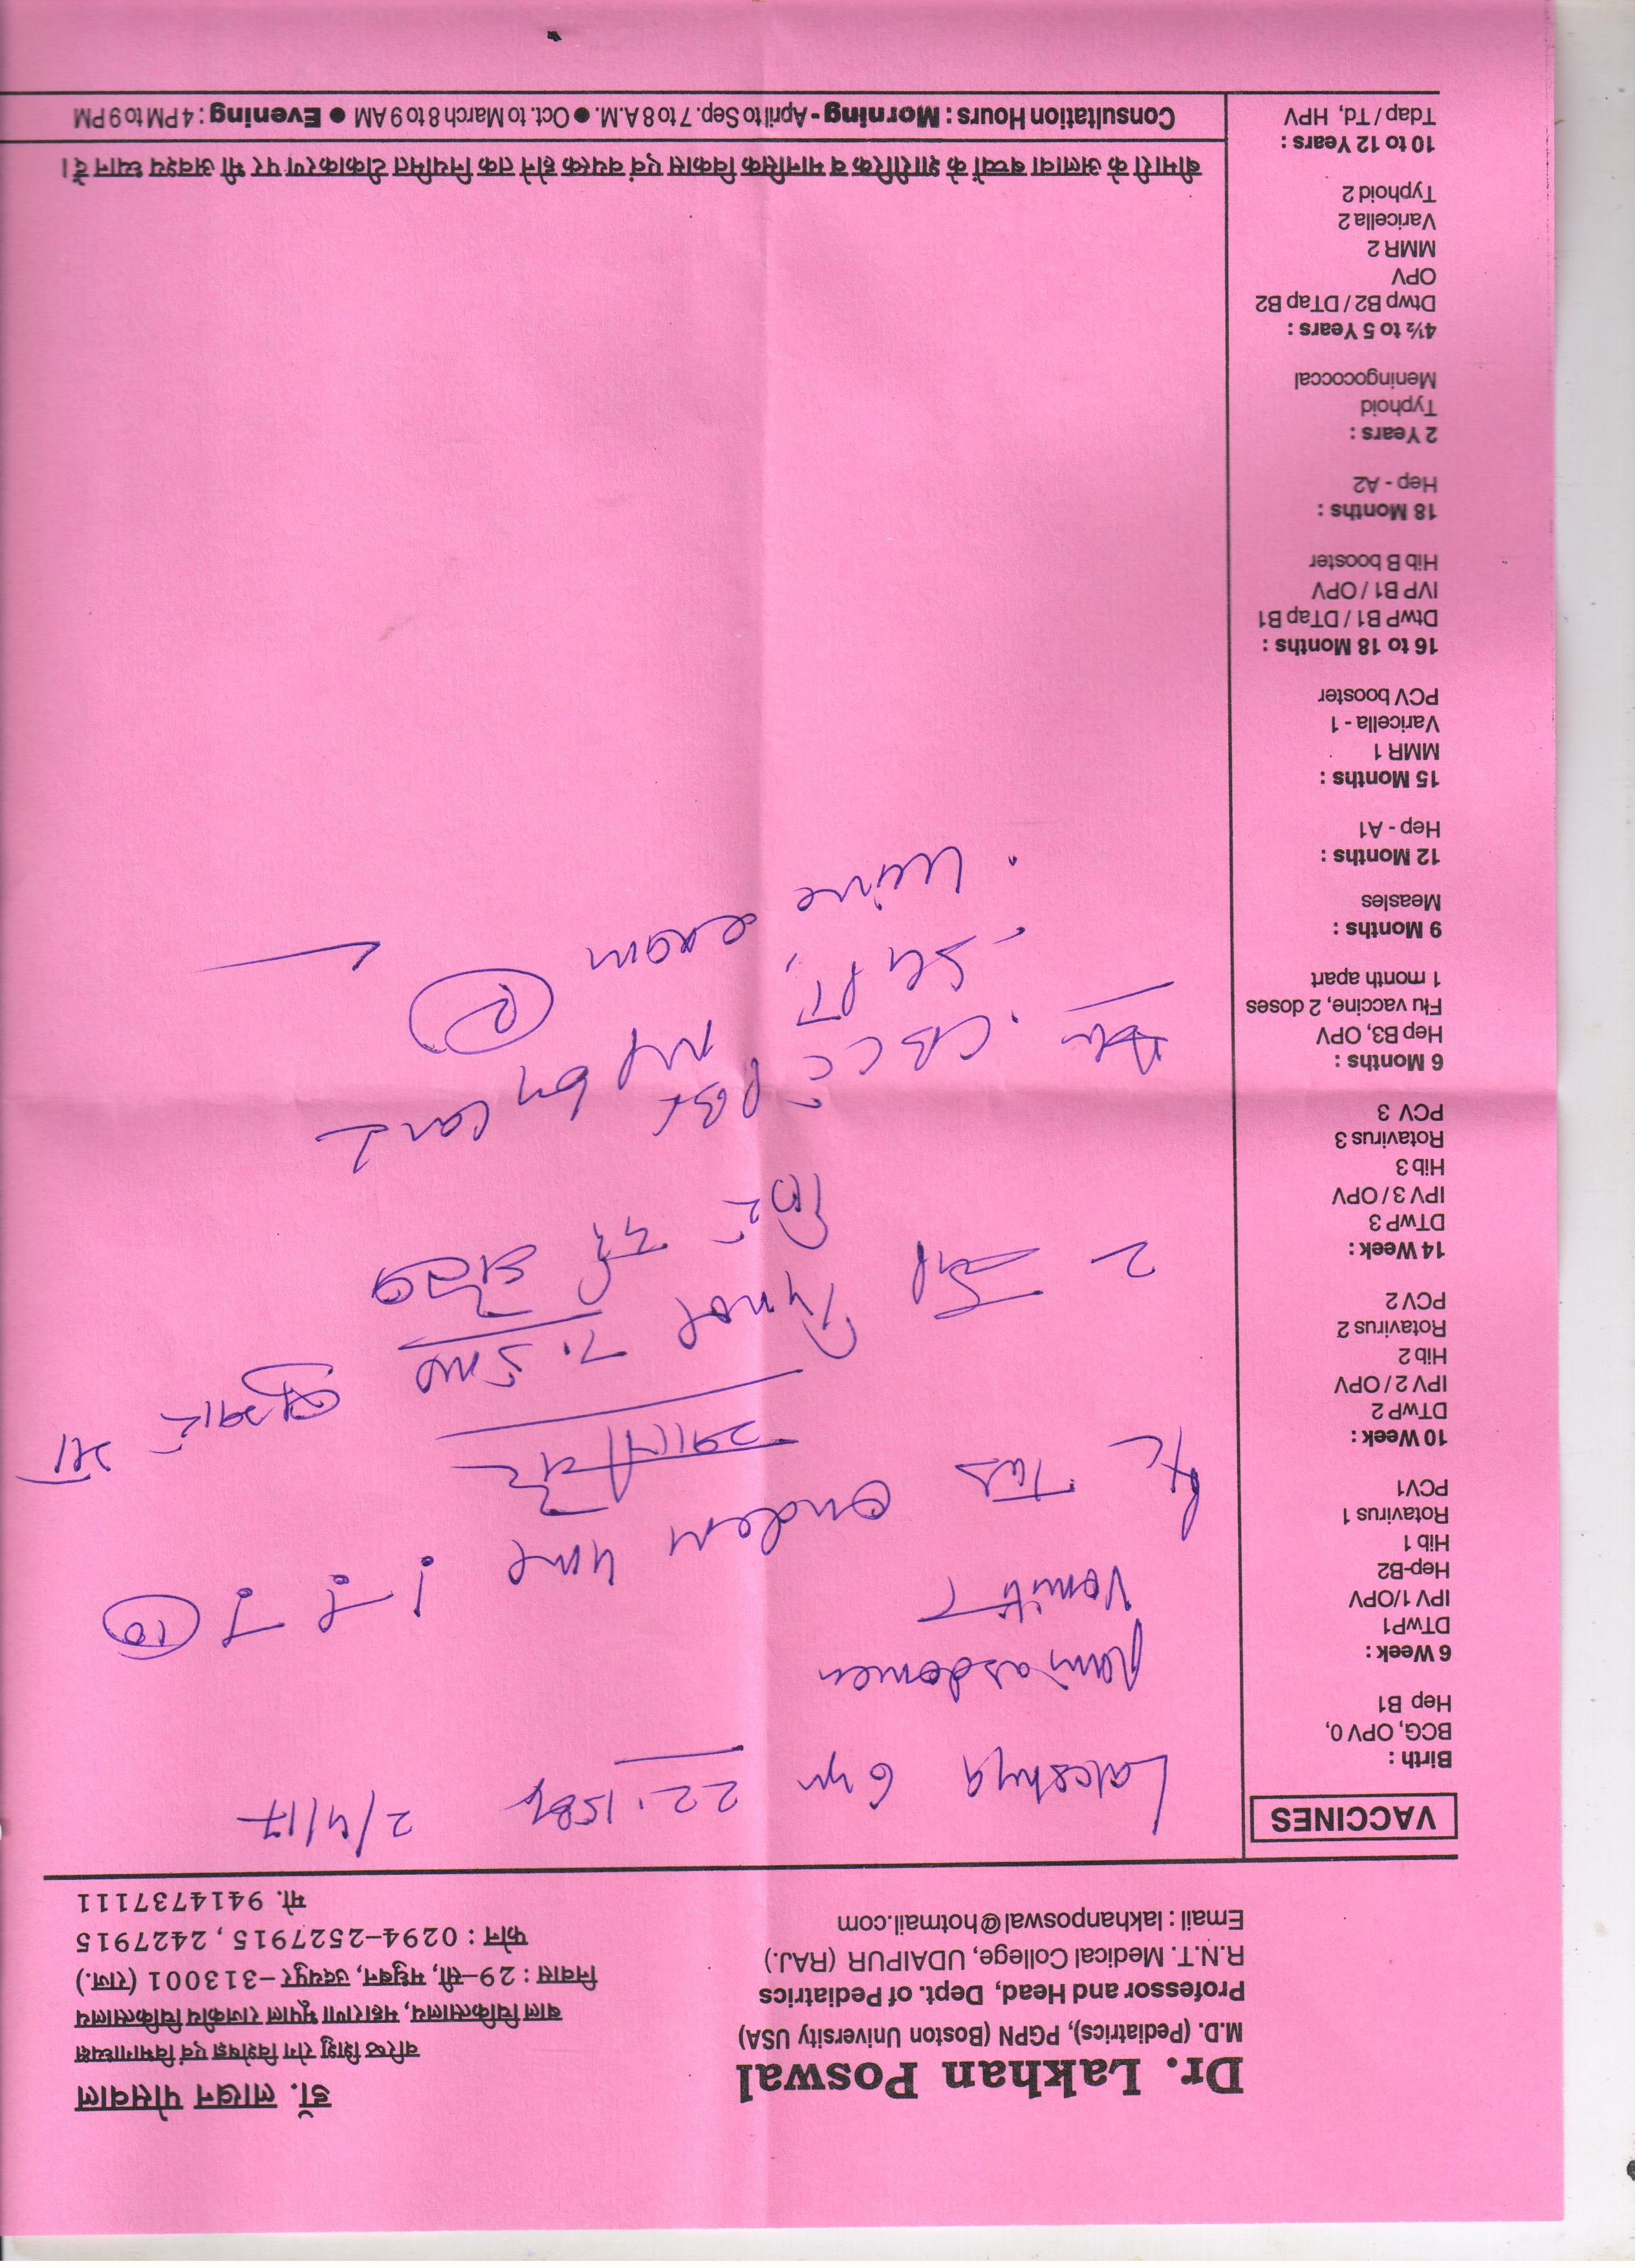 Dr. Lakhan Poswal
M.D. (Pediatrics), PGPN (Boston University USA)
Professor and Head, Dept. of Pediatrics
R.N.T. Medical College, UDAIPUR (RAJ.)
Email : lakhanposwal@hotmail.com
डॉ. लाखन पोसवाल
वरिष्ठ शिशु रोग विशेषज्ञ एवं विभागाध्यक्ष
बाल चिकित्सालय, महाराणा भूपाल राजकीय चिकित्सालय
निवास : 29-सी, मधुबन, उदयपुर -313001 (राज.)
फोन : 0294-2527915, 2427915
मो. 9414737111
VACCINES
Birth :
BCG, OPV 0,
Hep B1
6 Week :
DTwP1
IPV 1/OPV
Hep-B2
Hib 1
Rotavirus 1
PCV1
10 Week :
DTwP 2
IPV 2 / OPV
Hib 2
Rotavirus 2
PCV 2
14 Week :
DTwP 3
IPV 3 / OPV
Hib 3
Rotavirus 3
PCV 3
6 Months :
Hep B3, OPV
Flu vaccine, 2 doses
1 month apart
9 Months :
Measles
12 Months :
Hep - A1
15 Months :
MMR 1
Varicella - 1
PCV booster
16 to 18 Months :
DtwP B1 / DTap B1
IVP B1 / OPV
Hib B booster
18 Months :
Hep - A2
2 Years :
Typhoid
Meningococcal
4½ to 5 Years :
Dtwp B2 / DTap B2
OPV
MMR 2
Varicella 2
Typhoid 2
10 to 12 Years :
Tdap / Td, HPV
Lakshya 6 yr 22.15 kg 2/4/17
Pain abdomen
Vomit
Tab ondem 4 mg 10
7.5 ml बुखार
CBC PBF MP by card
SGPT,
Urine exam
बीमारी के अलावा बच्चों के शारीरिक व मानसिक विकास एवं वयस्क होने तक नियमित टीकाकरण पर भी अवश्य ध्यान दें।
Consultation Hours : Morning - April to Sep. 7 to 8 A.M. ● Oct. to March 8 to 9 AM ● Evening : 4 PM to 9 PM